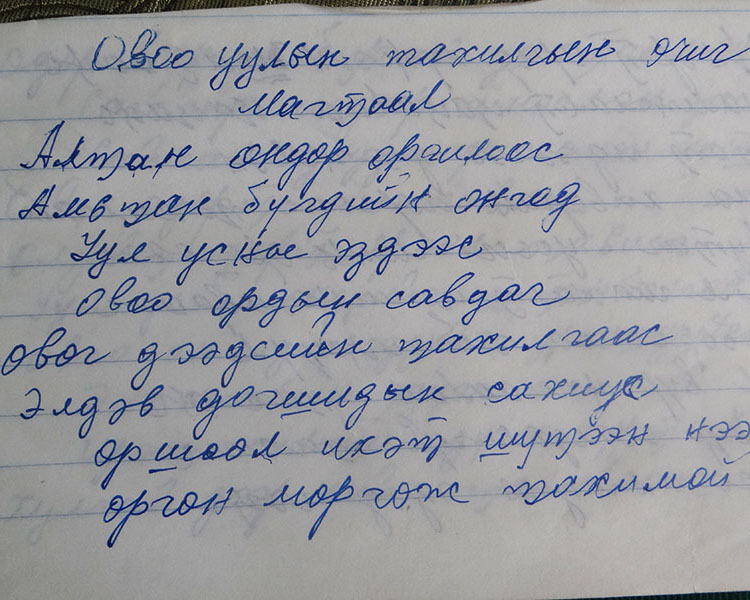 Овоо уулын тахилгын очиг
магтаал
Алтан өндөр оргилоос
Амьтан бүгдийн онгод
Уул усны эздээс
Овоо ордын савдаг
овог дээдсийн тахилгаас
Элдэв догшидын сахиус
оршоол ихэт шүтээн нээ
өргөн мөргөж тахимой